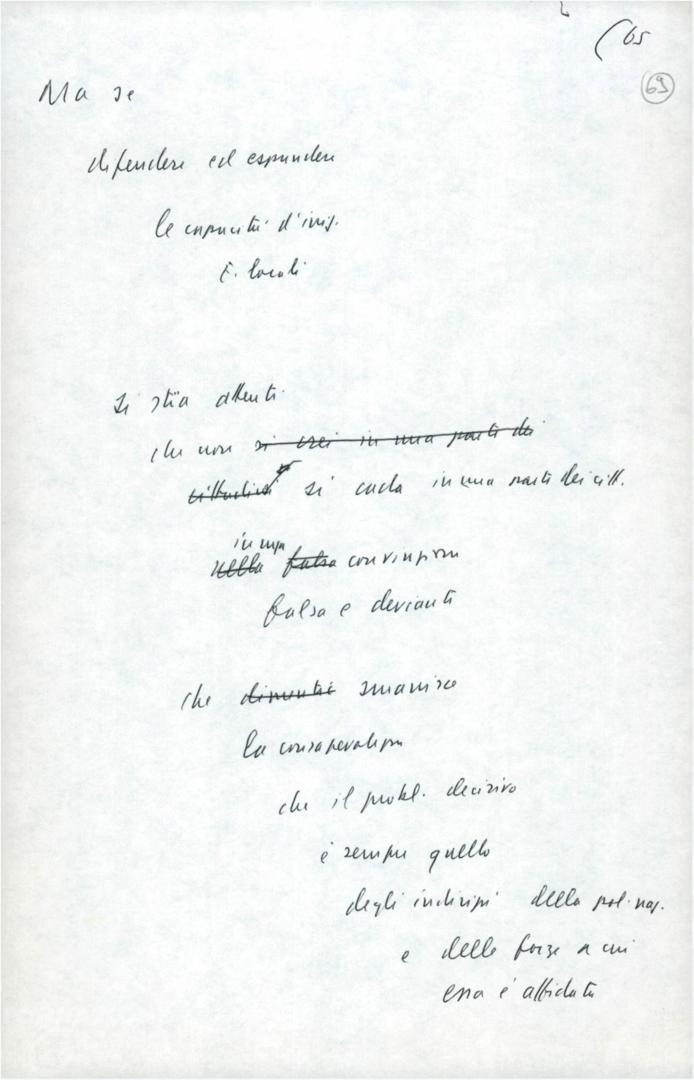 (65
69
Ma se
difendere ed espandere
le capacità d'iniz.
E. locali
si stia attenti
che non si crei in una parte dei
cittadini si cada in una parte dei citt.
in una
nella falsa convinzione
falsa e deviante
che diventi smarrisce
la consapevolezza
che il probl. decisivo
è sempre quello
degli indirizzi della pol. naz.
e delle forze a cui
essa è affidata